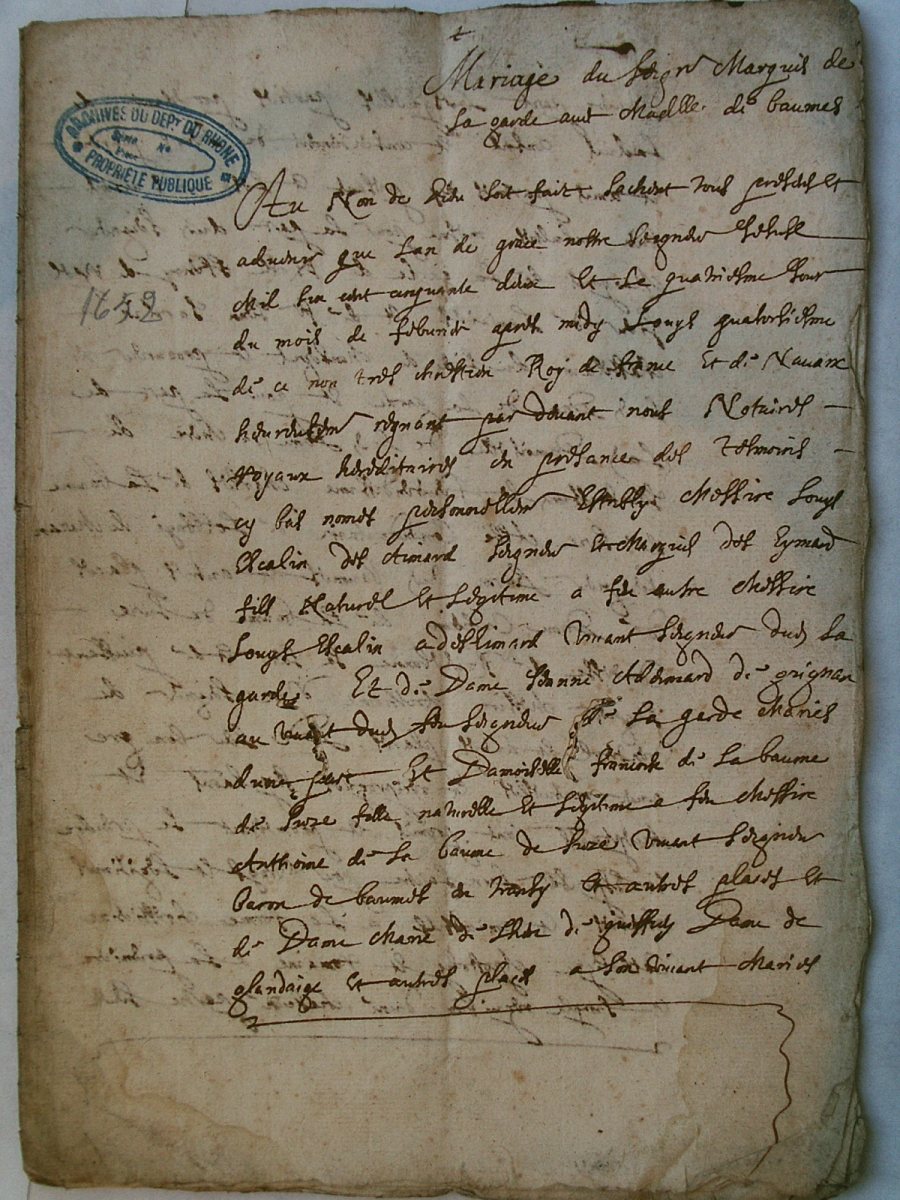 Mariage du Seigr Marquis de
la garde aut Madlle. de baumes
ARCHIVES DU DEPT DU RHÔNE
Série No
PROPRIÉTÉ PUBLIQUE
Au Nom de Dieu soit fait sachent tous presens et
advenir que Lan de grace nostre Seigneur
Mil six cent cinquante deux et Le quatriesme Jour
1652
du mois de febvrier apres midy Louys quatorsiesme
de ce nom tres chrestien Roy de france Et de Navarre
heureusemt regnant par devant nous Notaires
Royaux hereditaires en presance des tesmoins
cy bas nomes personnellemt Estably Messire Louys
Escalin des Aimard Seigneur et Marquis des Eymard
fils Naturel et Legitime a feu autre Messire
Louys Escalin adesHimard vivant Seigneur dud. La
garde Et de Dame Jeanne Adhemard de grignan
au vivant dud. feu Seigneur de La garde Mariés
dune part Et Damoiselle francoise de La baume
de Suze fille naturelle et Legitime a feu Messire
Anthoine de La baume de Suze vivant Seigneur
baron de baumes en et autres places et
de Dame Marie de de Dame de
glandaige et autres places a son vivant Mariés